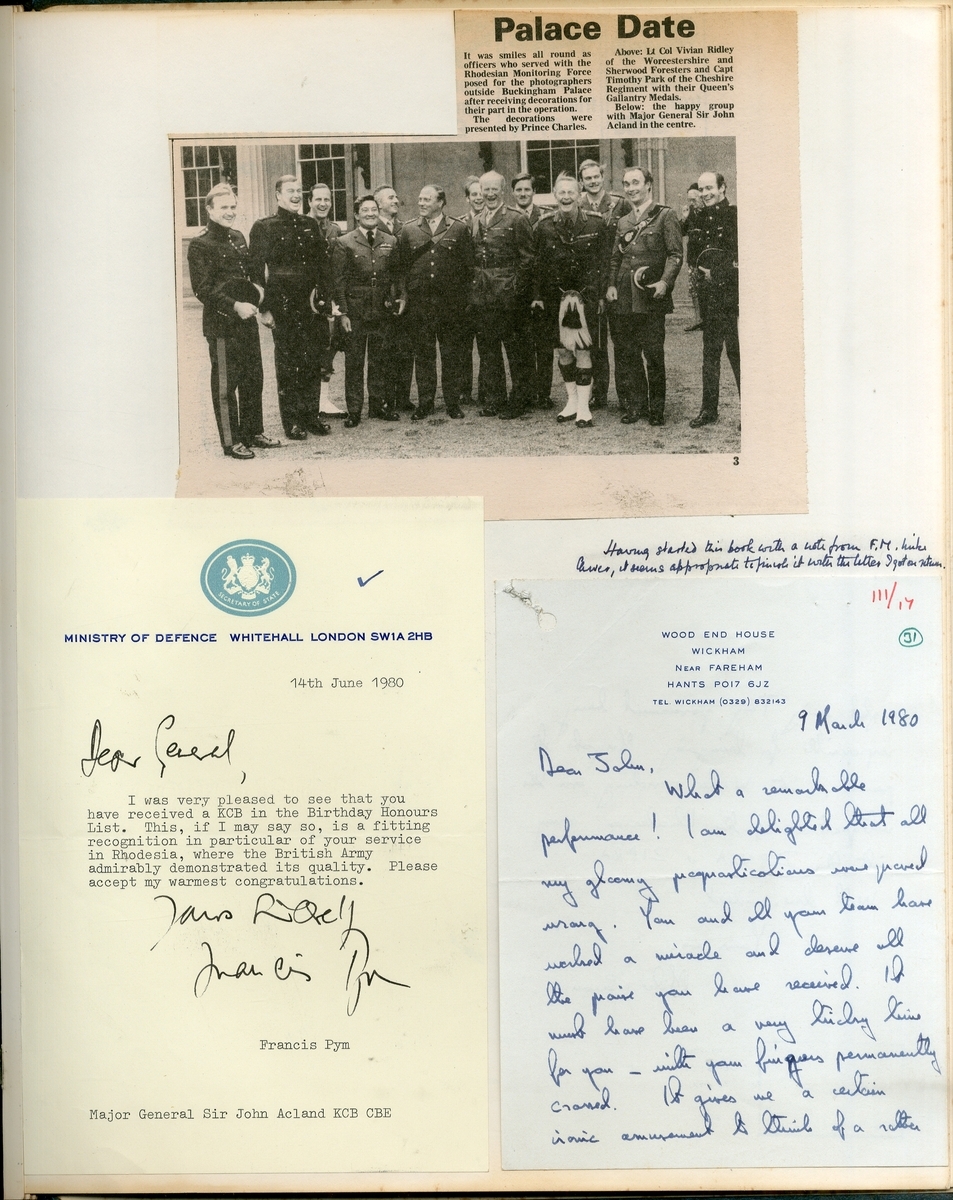 Palace Date
It was smiles all round as
officers who served with the
Rhodesian Monitoring Force
posed for the photographers
outside Buckingham Palace
after receiving decorations for
their part in the operation.
The decorations were
presented by Prince Charles.
Above: Lt Col Vivian Ridley
of the Worcestershire and
Sherwood Foresters and Capt
Timothy Park of the Cheshire
Regiment with their Queen's
Gallantry Medals.
Below: the happy group
with Major General Sir John
Acland in the centre.
3
SECRETARY OF STATE
MINISTRY OF DEFENCE WHITEHALL LONDON SW1A 2HB
14th June 1980
Dear General,
I was very pleased to see that you
have received a KCB in the Birthday Honours
List. This, if I may say so, is a fitting
recognition in particular of your service
in Rhodesia, where the British Army
admirably demonstrated its quality. Please
accept my warmest congratulations.
Yours
Francis Pym
Francis Pym
Major General Sir John Acland KCB CBE
Having started this book with a note from F.M. Mike
Carver, it seems appropriate to finish it with the letter I got on return.
111/14
31
WOOD END HOUSE
WICKHAM
NEAR FAREHAM
HANTS PO17 6JZ
TEL. WICKHAM (0329) 832143
9 March 1980
Dear John,
What a remarkable
performance! I am delighted that all
my gloomy prognostications were proved
wrong. You and all your team have
worked a miracle and deserve all
the praise you have received. It
must have been a very tricky time
for you – with your fingers permanently
crossed. It gives me a certain
ironic amusement to think of a rather